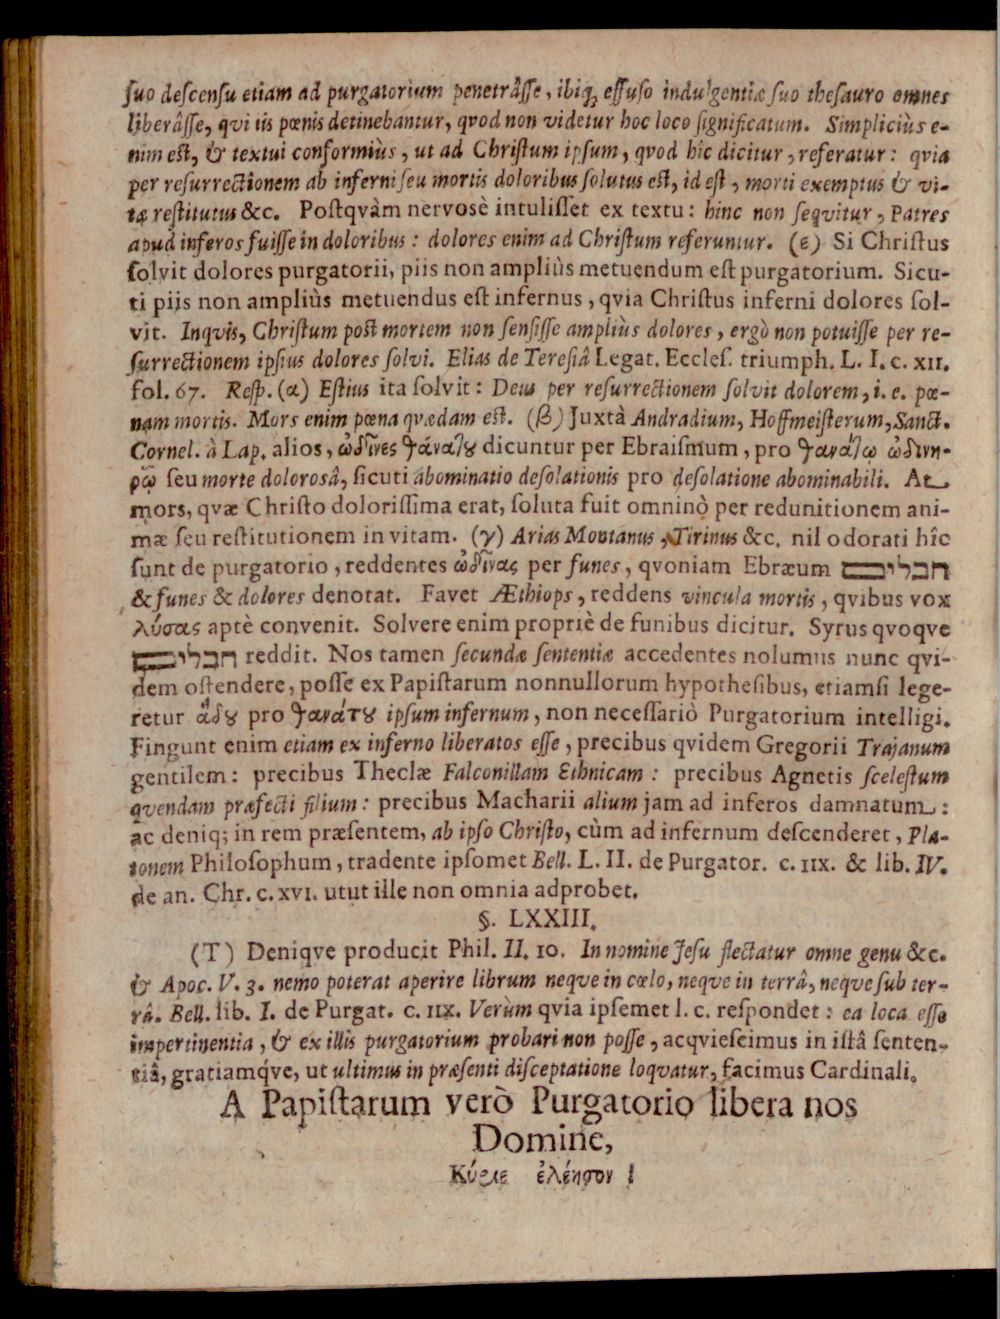 ſuo deſcenſu etiam ad purgatorium penetrâſſe, ibiq; effuſo indulgentiæ ſuo theſauro omnes
liberâſſe, qvi iis pœnis detinebantur, qvod non videtur hoc loco ſignificatum. Simpliciùs e-
nim eſt, & textui conformiùs, ut ad Chriſtum ipſum, qvod hîc dicitur, referatur: qvia
per reſurrectionem ab inferni ſeu mortis doloribus ſolutus eſt, id eſt, morti exemptus & vi-
tæ reſtitutus &c. Poſtqvàm nervosè intuliſſet ex textu: hinc non ſeqvitur, Patres
apud inferos fuiſſe in doloribus: dolores enim ad Chriſtum referuntur. (ε) Si Chriſtus
ſolvit dolores purgatorii, piis non ampliùs metuendum eſt purgatorium. Sicu-
ti piis non ampliùs metuendus eſt infernus, qvia Chriſtus inferni dolores ſol-
vit. Inqvis, Chriſtum poſt mortem non ſenſiſſe ampliùs dolores, ergò non potuiſſe per re-
ſurrectionem ipſius dolores ſolvi. Elias de Tereſiâ Legat. Eccleſ. triumph. L. I. c. XII.
fol. 67. Reſp. (α) Eſtius ita ſolvit: Deus per reſurrectionem ſolvit dolorem, i. e. pœ-
nam mortis. Mors enim pœna quædam eſt. (β) Juxtà Andradium, Hoffmeiſterum, Sanct.
Cornel. à Lap. alios, ὠδῖνες θάνατȣ dicuntur per Ebraiſmum, pro θανάτω ὠδινη-
ρῶ ſeu morte doloroſâ, ſicuti abominatio deſolationis pro deſolatione abominabili. At
mors, qvæ Chriſto doloriſſima erat, ſoluta fuit omninò per redunitionem ani-
mæ ſeu reſtitutionem in vitam. (γ) Arias Montanus, Tirinus &c. nil odorati hîc
ſunt de purgatorio, reddentes ὠδῖνας per funes, qvoniam Ebræum חבלים
& funes & dolores denotat. Favet Æthiops, reddens vincula mortis, qvibus vox
λύσας aptè convenit. Solvere enim propriè de funibus dicitur. Syrus qvoqve
חבלים reddit. Nos tamen ſecundæ ſententiæ accedentes nolumus nunc qvi-
dem oſtendere, poſſe ex Papiſtarum nonnullorum hypotheſibus, etiamſi lege-
retur ᾅδȣ pro θανάτȣ ipſum infernum, non neceſſariò Purgatorium intelligi.
Fingunt enim etiam ex inferno liberatos eſſe, precibus qvidem Gregorii Trajanum
gentilem: precibus Theclæ Falconillam Ethnicam: precibus Agnetis ſceleſtum
qvendam præfecti filium: precibus Macharii alium jam ad inferos damnatum:
ac deniq; in rem præſentem, ab ipſo Chriſto, cùm ad infernum deſcenderet, Pla-
tonem Philoſophum, tradente ipſomet Bell. L. II. de Purgator. c. IIX. & lib. IV.
de an. Chr. c. XVI. utut ille non omnia adprobet.
§. LXXIII.
(T) Deniqve producit Phil. II. 10. In nomine Jeſu flectatur omne genu &c.
& Apoc. V. 3. nemo poterat aperire librum neqve in cœlo, neqve in terrâ, neqve ſub ter-
râ. Bell. lib. I. de Purgat. c. IIX. Verùm qvia ipſemet l. c. reſpondet: ea loca eſſe
impertinentia, & ex illis purgatorium probari non poſſe, acqvieſcimus in iſtâ ſenten-
tiâ, gratiamq́ve, ut ultimus in præſenti diſceptatione loqvatur, facimus Cardinali.
A Papiſtarum verò Purgatorio libera nos
Domine,
Κύριε ἐλέησον!